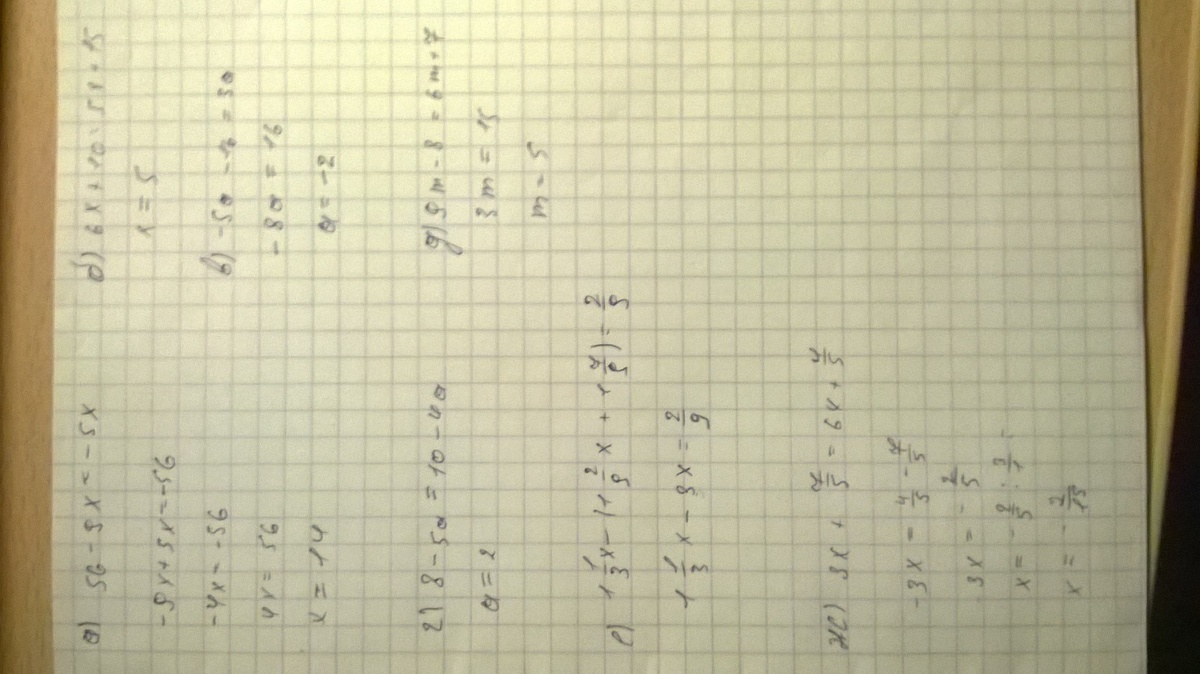 а) 56 - 9x = -5x
-9x + 5x = -56
-4x = -56
4x = 56
x = 14
б) 6x + 10 = 5x + 15
x = 5
в) -5a - 16 = 3a
-8a = 16
a = -2
г) 8 - 5a = 10 - 4a
a = 2
д) 9m - 8 = 6m + 7
3m = 15
m = 5
е) 1 1/3 x - (1 2/9 x + 1 7/9) = 2/9
1 1/3 x - 9x = 2/9
ж) 3x + 7/5 = 6x + 4/5
-3x = 4/5 - 7/5
3x = - 2/5
x = - 2/5 : 3/1 =
x = - 2/15